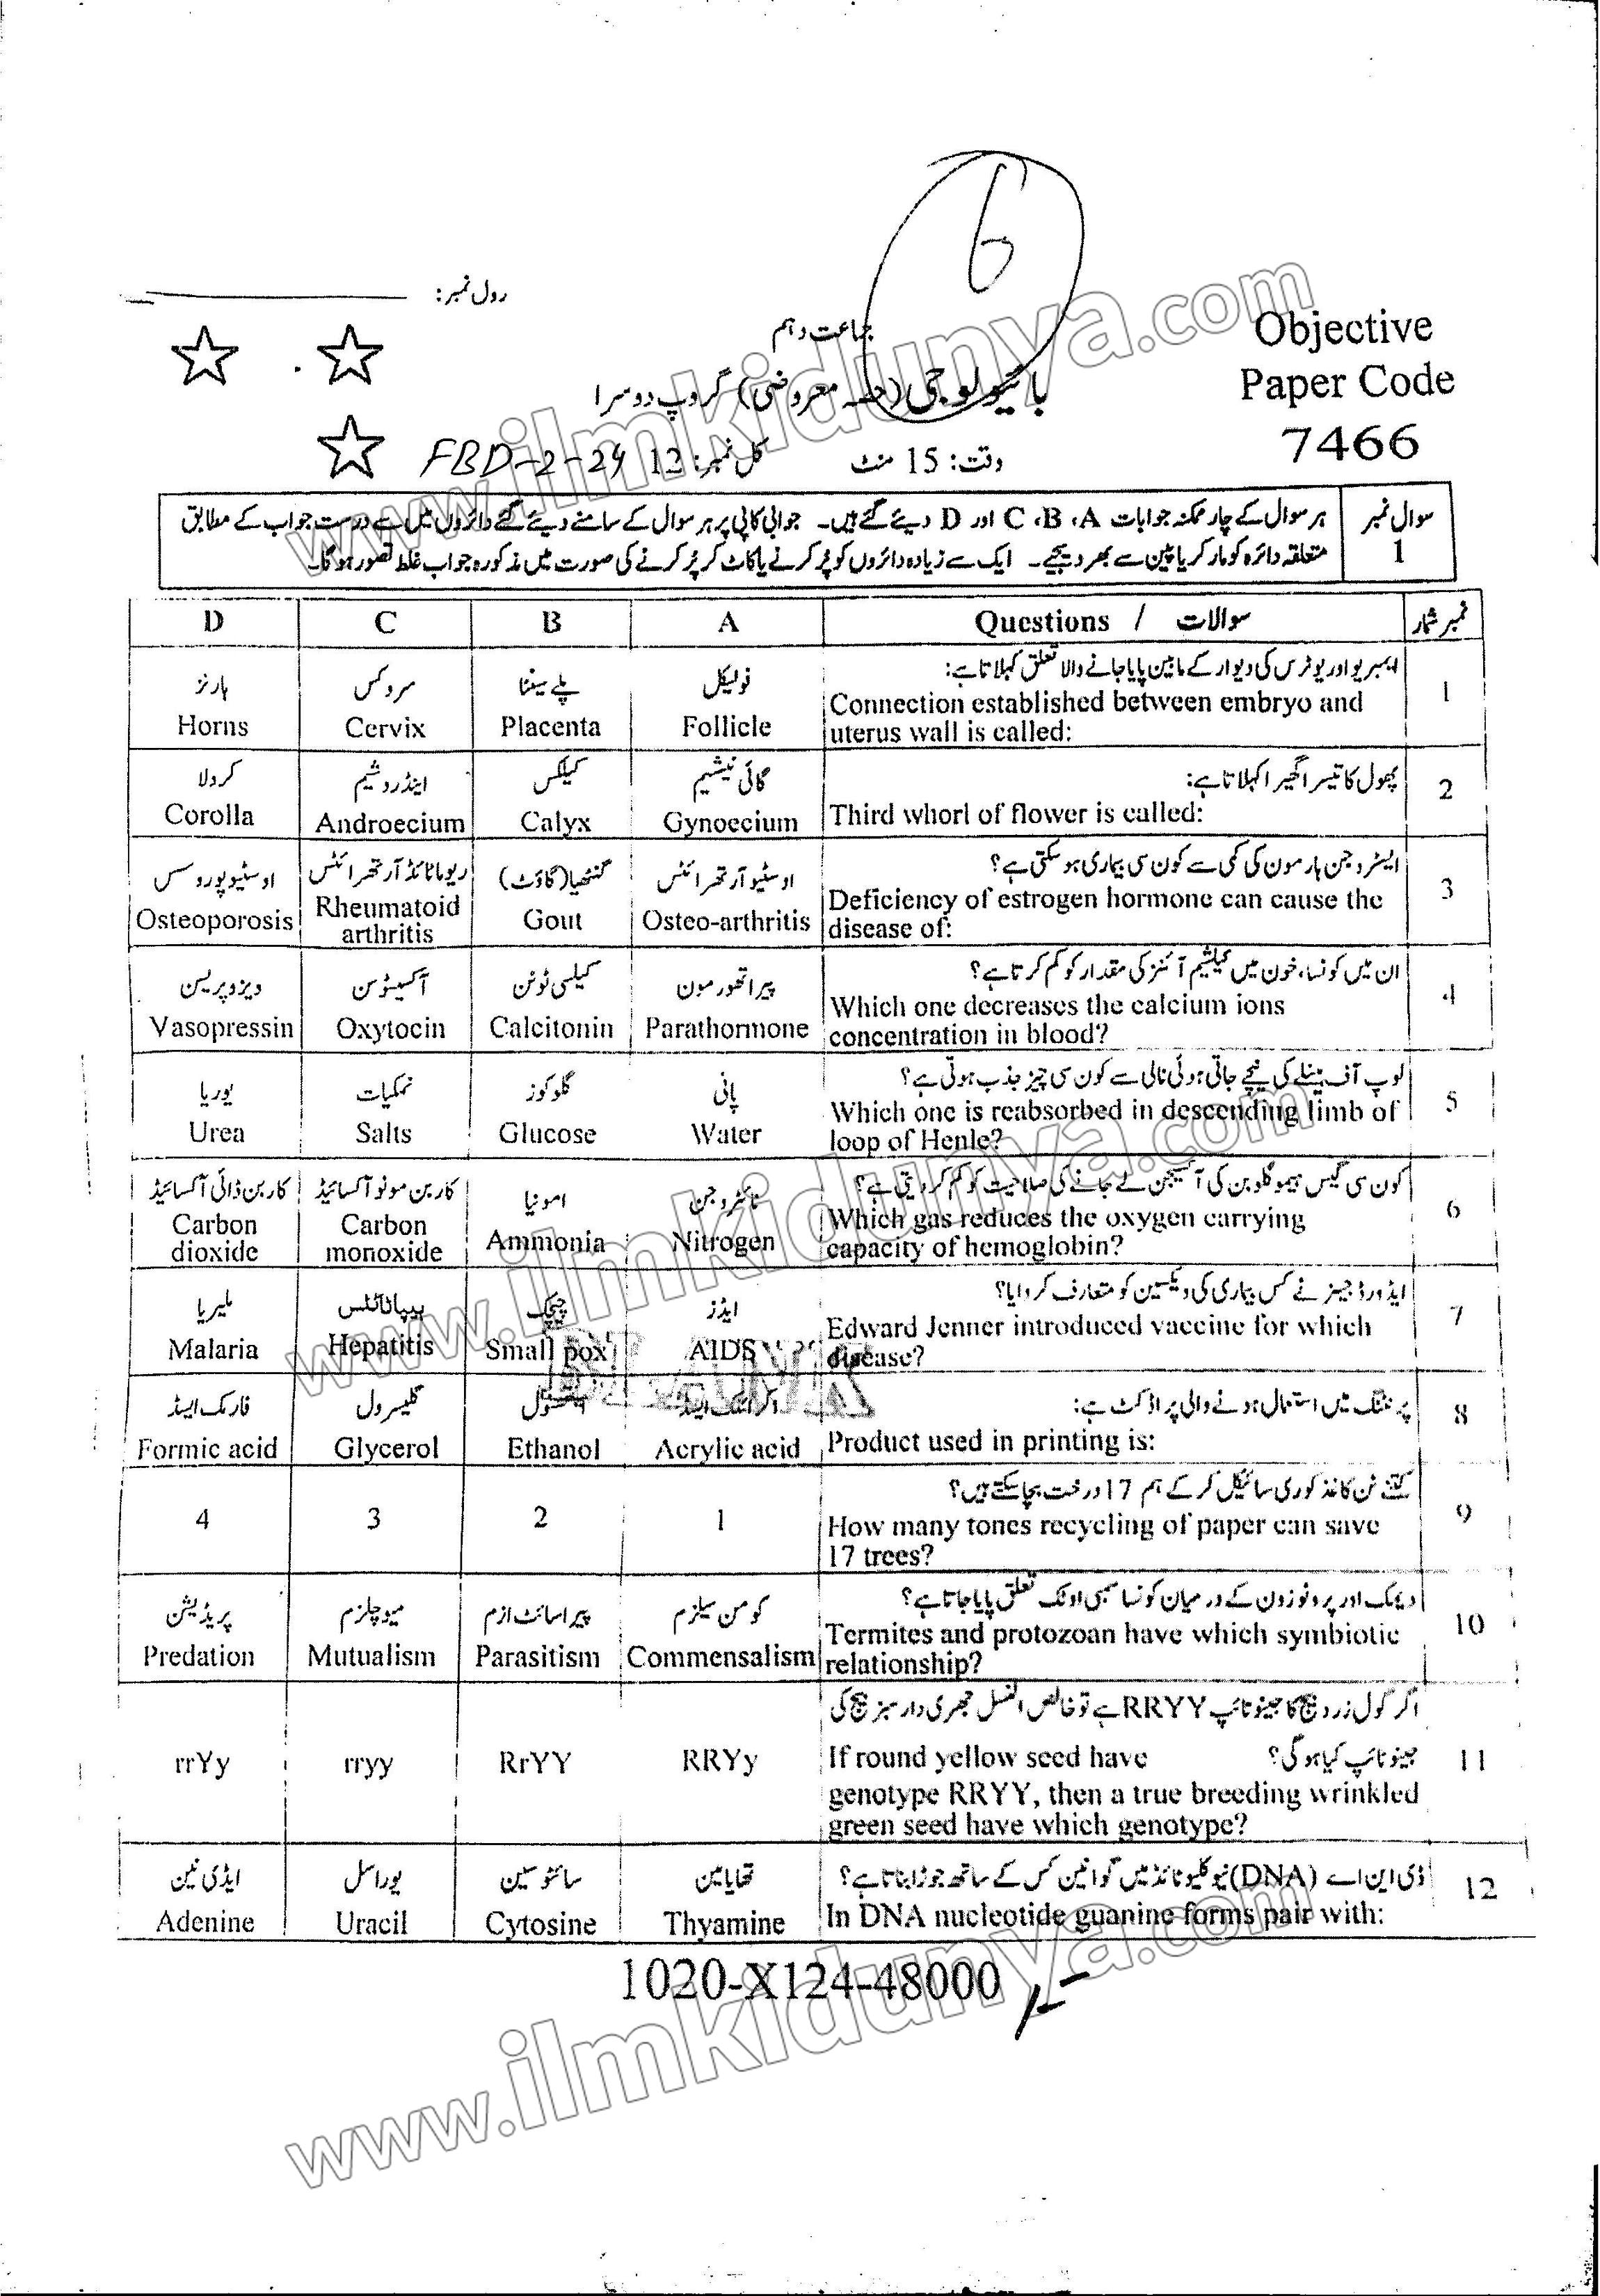 6
رول نمبر:
جماعت دہم
Objective
Paper Code
7466
بائیولوجی (حصہ معروضی) گروپ دوسرا
وقت: 15 منٹ کل نمبر: 12 FBD-2-24
سوال نمبر 1
ہر سوال کے چار ممکنہ جوابات A، B، C اور D دیئے گئے ہیں۔ جوابی کاپی پر ہر سوال کے سامنے دیئے گئے دائروں میں سے درست جواب کے مطابق
متعلقہ دائرہ کو مارکر یا پین سے بھر دیجیے۔ ایک سے زیادہ دائروں کو پُر کرنے یا کاٹ کر پُر کرنے کی صورت میں مذکورہ جواب غلط تصور ہوگا۔
نمبر شمار Questions / سوالات A B C D
1 ایمبریو اور یوٹرس کی دیوار کے مابین پایا جانے والا تعلق کہلاتا ہے:
Connection established between embryo and
uterus wall is called:
فولیکل پلے سینٹا سروکس ہارنز
Follicle Placenta Cervix Horns
2 پھول کا تیسرا گھیرا کہلاتا ہے:
Third whorl of flower is called:
گائی نیشیم کیلکس اینڈروشیم کرولا
Gynoecium Calyx Androecium Corolla
3 ایسٹروجن ہارمون کی کمی سے کون سی بیماری ہو سکتی ہے؟
Deficiency of estrogen hormone can cause the
disease of:
اوسٹیو آرتھرائٹس گنٹھیا (گاؤٹ) ریوماٹائڈ آرتھرائٹس اوسٹیوپوروسس
Osteo-arthritis Gout Rheumatoid arthritis Osteoporosis
4 ان میں کونسا، خون میں کیلشیم آئنز کی مقدار کو کم کرتا ہے؟
Which one decreases the calcium ions
concentration in blood?
پیراتھورمون کیلسی ٹونن آکسیٹوسن ویزوپریسن
Parathormone Calcitonin Oxytocin Vasopressin
5 لوپ آف ہینلے کی نیچے جاتی ہوئی نالی سے کون سی چیز جذب ہوتی ہے؟
Which one is reabsorbed in descending limb of
loop of Henle?
پانی گلوکوز نمکیات یوریا
Water Glucose Salts Urea
6 کون سی گیس ہیموگلوبن کی آکسیجن لے جانے کی صلاحیت کو کم کر دیتی ہے؟
Which gas reduces the oxygen carrying
capacity of hemoglobin?
نائٹروجن امونیا کاربن مونو آکسائیڈ کاربن ڈائی آکسائیڈ
Nitrogen Ammonia Carbon monoxide Carbon dioxide
7 ایڈورڈ جینر نے کس بیماری کی ویکسین کو متعارف کروایا؟
Edward Jenner introduced vaccine for which
disease?
ایڈز چیچک ہیپاٹائٹس ملیریا
AIDS Small pox Hepatitis Malaria
8 پرنٹنگ میں استعمال ہونے والی پراڈکٹ ہے:
Product used in printing is:
گلیسرول فارمک ایسڈ
Acrylic acid Ethanol Glycerol Formic acid
9 کتنے ٹن کاغذ کو ری سائیکل کر کے ہم 17 درخت بچا سکتے ہیں؟
How many tones recycling of paper can save
17 trees?
1 2 3 4
10 دیمک اور پروٹوزون کے درمیان کونسا سمبی اوٹک تعلق پایا جاتا ہے؟
Termites and protozoan have which symbiotic
relationship?
کومن سیلزم پیراسائٹ ازم میوچلزم پریڈیشن
Commensalism Parasitism Mutualism Predation
11 اگر گول زرد بیج کا جینوٹائپ RRYY ہے تو خالص النسل جھری دار سبز بیج کی
جینوٹائپ کیا ہوگی؟ If round yellow seed have
genotype RRYY, then a true breeding wrinkled
green seed have which genotype?
RRYy RrYY rryy rrYy
12 ڈی این اے (DNA) نیوکلیوٹائڈ میں گوانین کس کے ساتھ جوڑا بناتا ہے؟
In DNA nucleotide guanine forms pair with:
تھایامین سائٹوسین یوراسل ایڈی نین
Thyamine Cytosine Uracil Adenine
1020-X124-48000
www.ilmkidunya.com
www.ilmkidunya.com
www.ilmkidunya.com